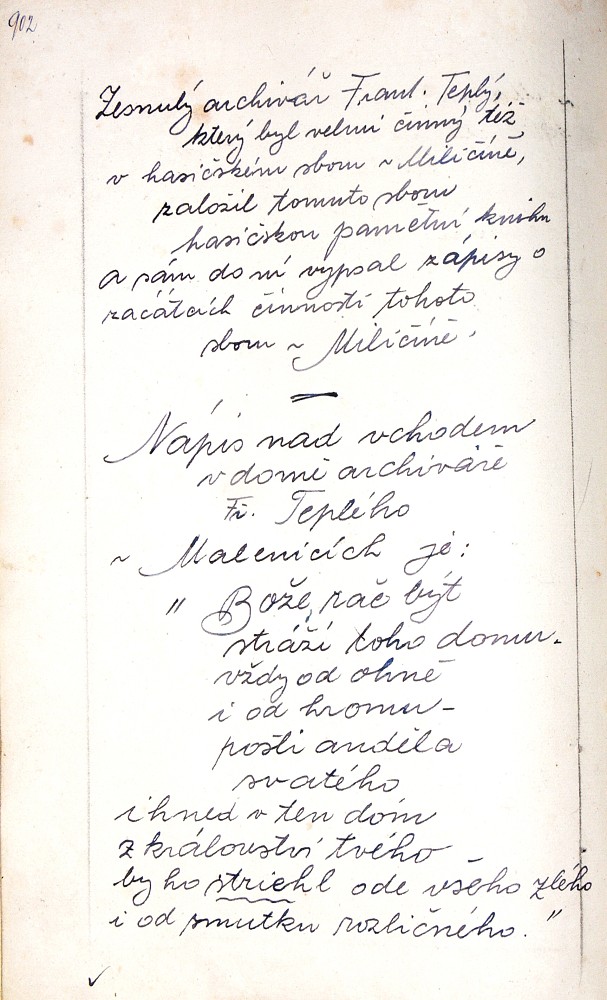 902
Zesnulý archivář Frant. Teplý,
který byl velmi činný též
v hasičském sboru v Miličíně,
založil tomuto sboru
hasičskou pamětní knihu
a sám do ní vypsal zápisy o
začátcích činnosti tohoto
sboru v Miličíně.
Nápis nad vchodem
v domě archiváře
Fr. Teplého
v Malenicích je:
"Bože, rač být
stráží toho domu.
vždy od ohně
i od hromu-
pošli anděla
svatého
ihned v ten dóm
z království tvého
by ho střiehl ode všeho zlého
i od smutku rozličného."